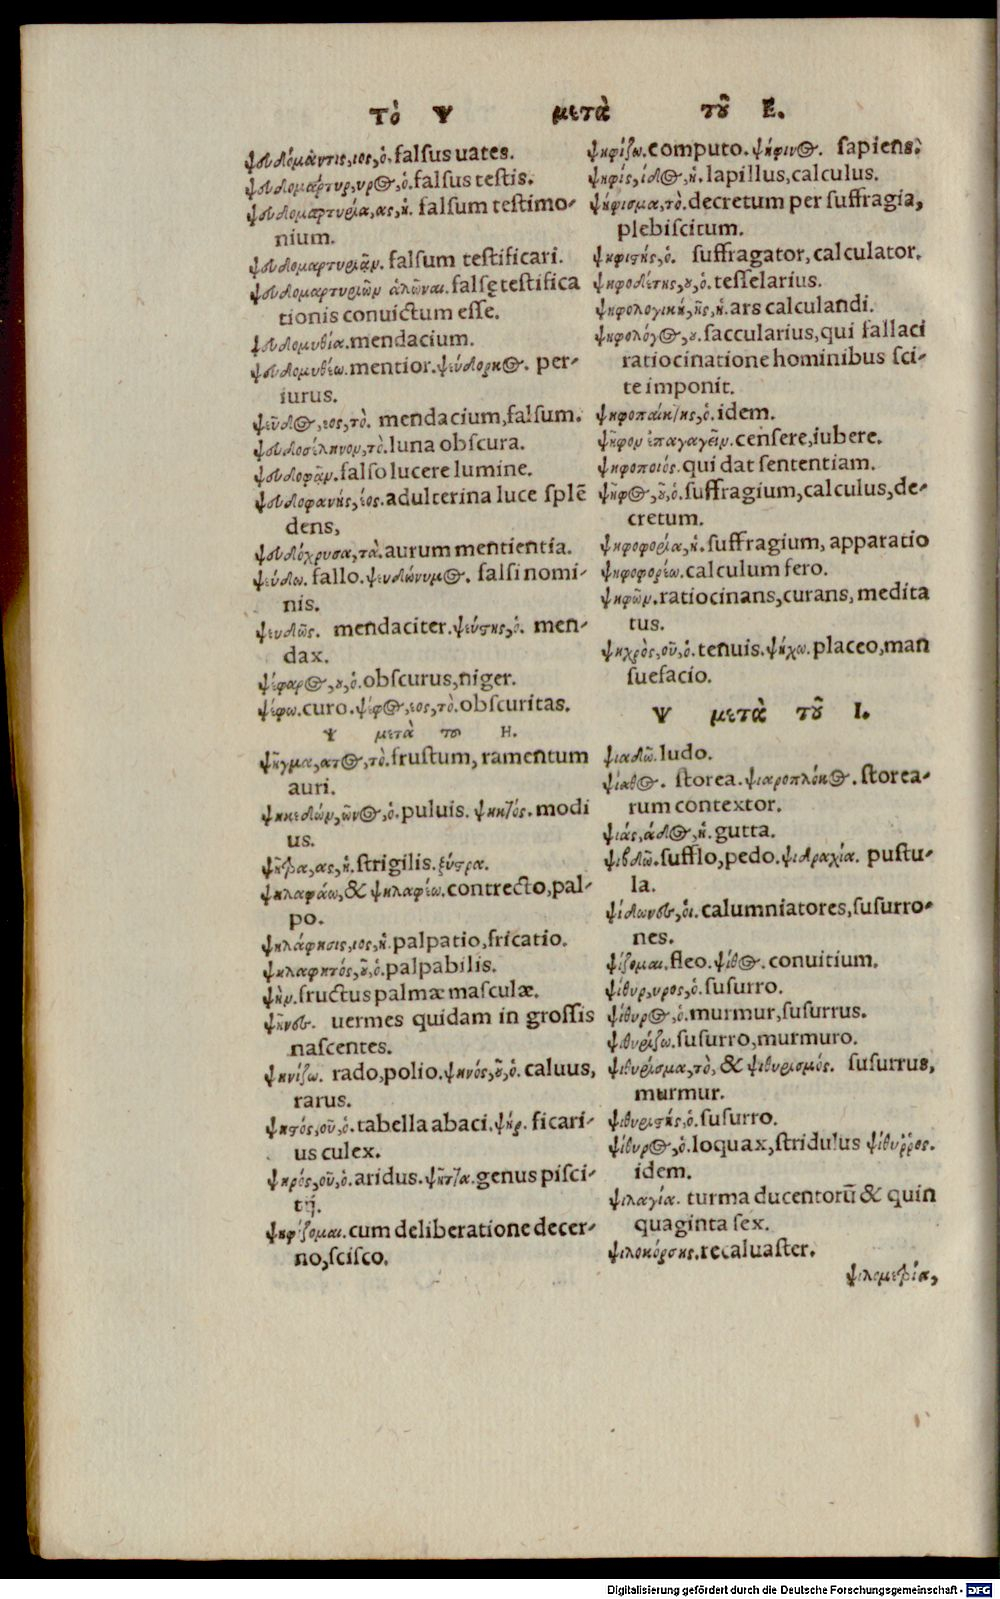 Τὸ Ψ μετὰ τοῦ Ε.
ψευδόμαντις, ιος, ὁ. falsus uates.
ψευδομάρτυρ, υρος, ὁ. falsus testis.
ψευδομαρτυρία, ας, ἡ. falsum testimo-
nium.
ψευδομαρτυριᾶν. falsum testificari.
ψευδομαρτυριῶν ἁλῶναι. falsę testifica
tionis conuictum esse.
ψευδομυθία. mendacium.
ψευδομυθέω. mentior. ψεύδορκος. per-
iurus.
ψεῦδος, εος, τὸ. mendacium, falsum.
ψευδοσέληνον, τὸ. luna obscura.
ψευδοφᾶν. falso lucere lumine.
ψευδοφανής, έος. adulterina luce splē
dens,
ψευδόχρυσα, τὰ. aurum mentientia.
ψεύδω. fallo. ψευδώνυμος. falsi nomi-
nis.
ψευδῶς. mendaciter. ψεύστης, ὁ. men-
dax.
ψέφαρος, ου, ὁ. obscurus, niger.
ψέφω. curo. ψέφος, εος, τὸ. obscuritas.
Ψ μετὰ του Η.
ψῆγμα, ατος, τὸ. frustum, ramentum
auri.
ψηκεδών, ῶνος, ὁ. puluis. ψηκτός. modi
us.
ψῆκτρα, ας, ἡ. strigilis. ξύστρα.
ψηλαφάω, & ψηλαφέω. contrecto, pal-
po.
ψηλάφησις, ιος, ἡ. palpatio, fricatio.
ψηλαφητός, οῦ, ὁ. palpabilis.
ψὴν. fructus palmæ masculæ.
ψῆνες. uermes quidam in grossis
nascentes.
ψηνίζω. rado, polio. ψηνός, οῦ, ὁ. caluus,
rarus.
ψηστός, οῦ, ὁ. tabella abaci. ψήρ. ficari-
us culex.
ψηρός, οῦ, ὁ. aridus. ψῆττα. genus pisci-
tij.
ψηφίζομαι. cum deliberatione decer-
no, scisco.
ψηφίζω. computo. ψήφινος. sapiens.
ψηφίς, ίδος, ἡ. lapillus, calculus.
ψήφισμα, τὸ. decretum per suffragia,
plebiscitum.
ψηφιστής, ὁ. suffragator, calculator.
ψηφοθέτης, ου, ὁ. tesselarius.
ψηφολογική, ῆς, ἡ. ars calculandi.
ψηφολόγος, ου. saccularius, qui fallaci
ratiocinatione hominibus sci-
te imponit.
ψηφοπαίκτης, ὁ. idem.
ψῆφον ἐπαγαγεῖν. censere, iubere.
ψηφοποιός. qui dat sententiam.
ψῆφος, οῦ, ὁ. suffragium, calculus, de-
cretum.
ψηφοφορία, ἡ. suffragium, apparatio
ψηφοφορέω. calculum fero.
ψηφῶν. ratiocinans, curans, medita
tus.
ψηχρὸς, οῦ, ὁ. tenuis. ψήχω. placeo, man
suefacio.
Ψ μετὰ τοῦ Ι.
ψιαδῶ. ludo.
ψίαθος. storea. ψιαροπλόκος. storea-
rum contextor.
ψιάς, άδος, ἡ. gutta.
ψιβδῶ. sufflo, pedo. ψιδραχία. pustu-
la.
ψίδωνες, οι. calumniatores, susurro-
nes.
ψίζομαι. fleo. ψίθος. conuitium.
ψίθυρ, υρος, ὁ. susurro.
ψίθυρος, ὁ. murmur, susurrus.
ψιθυρίζω. susurro, murmuro.
ψιθυρισμα, τὸ, & ψιθυρισμός. susurrus,
murmur.
ψιθυριστής, ὁ. susurro.
ψίθυρος, ὁ. loquax, stridulus ψίθυῤῥος.
idem.
ψιλαγία. turma ducentorū & quin
quaginta sex.
ψιλοκόρσης. recaluaster.
ψιλομετρία,
Digitalisierung gefördert durch die Deutsche Forschungsgemeinschaft - DFG